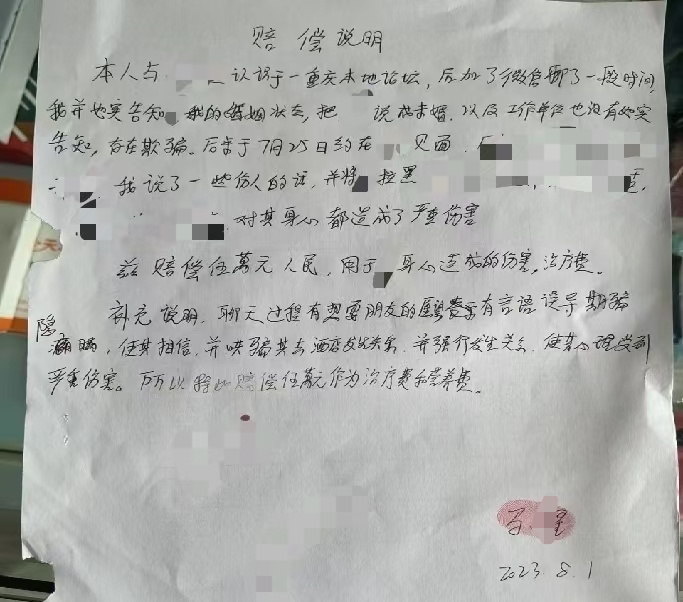 赔偿说明
本人与 认识于一重庆本地论坛,后加了微信聊了一段时间,
我并如实告知 我的婚姻状态,把 说成未婚,以及工作单位也没有如实
告知,存在欺骗。后来于7月25日约在 见面,
我说了一些伤人的话,并将 拉黑
对其身心都造成了严重伤害
兹赔偿伍萬元人民,用于 身心造成的伤害。治疗费。
补充说明,聊天过程有想要朋友的 有言语误导期骗
隐瞒,使其相信,并哄骗其去酒店发生关系,并强行发生关系,使其心理受到
严重伤害。所以 赔偿伍萬元作为治疗费和营养费。
2023.8.1